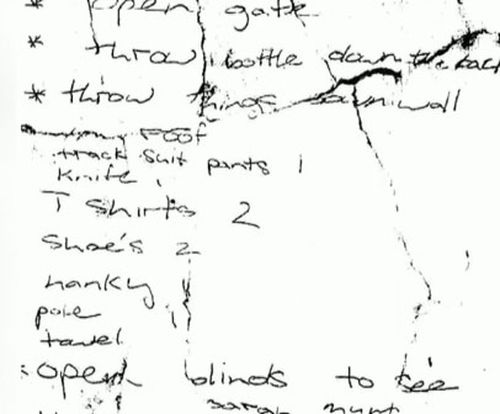 * open gate
* throw bottle down the back
* throw things down wall
roof
track suit pants 1
knife 1
T Shirts 2
Shoe's 2
hanky
pole
towel
open blinds to see
sarah